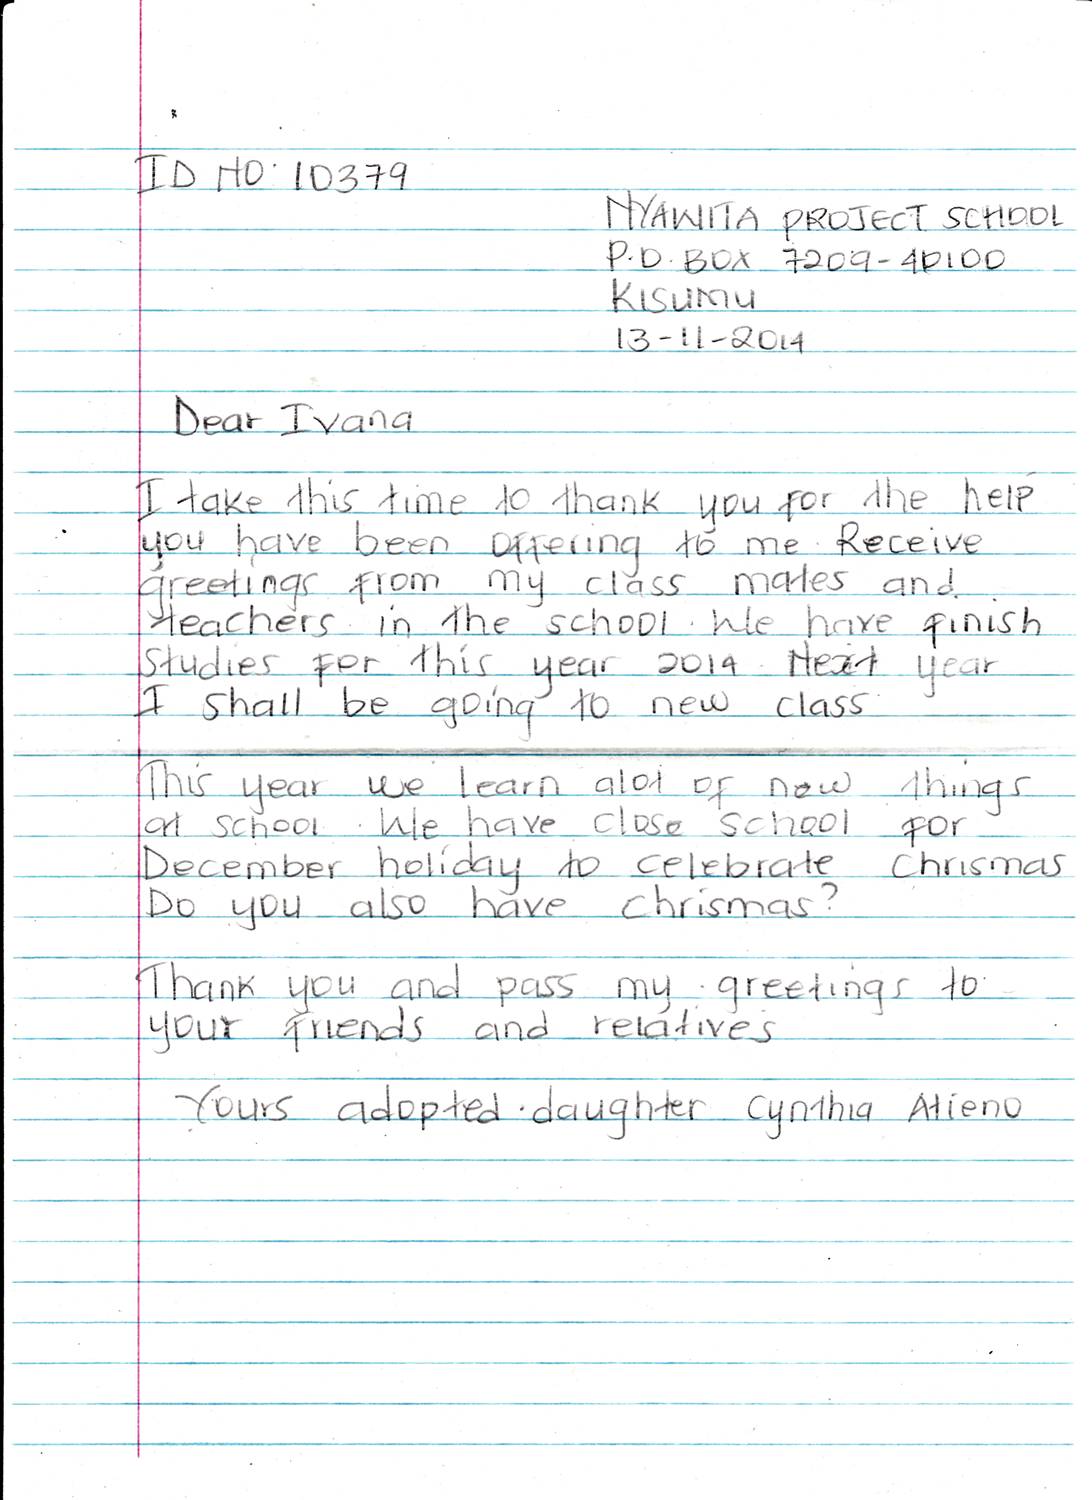 ID NO. 10379
NYAWITA PROJECT SCHOOL
P.O. BOX 7209-40100
KISUMU
13-11-2014
Dear Ivana
I take this time to thank you for the help
you have been offering to me. Receive
greetings from my class mates and
teachers in the school. We have finish
studies for this year 2014. Next year
I shall be going to new class
This year we learn alot of new things
at school. We have close school for
December holiday to celebrate Chrismas
Do you also have chrismas?
Thank you and pass my greetings to
your friends and relatives
Yours adopted daughter Cynthia Atieno